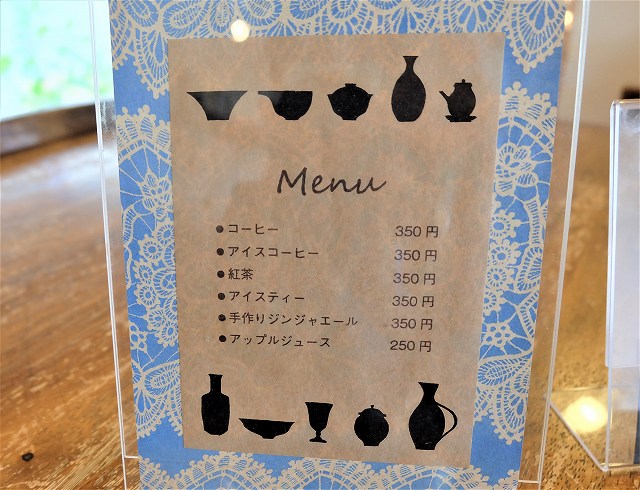 Menu
●コーヒー 350円
●アイスコーヒー 350円
●紅茶 350円
●アイスティー 350円
●手作りジンジャエール 350円
●アップルジュース 250円